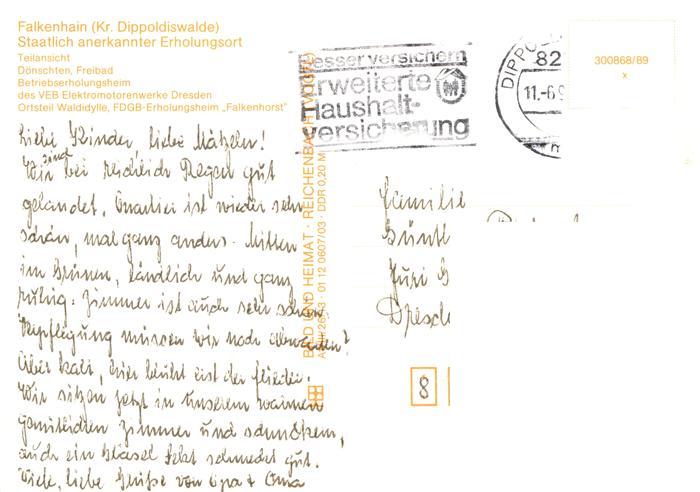 Falkenhain (Kr. Dippoldiswalde)
Staatlich anerkannter Erholungsort
Teilansicht
Dönschten, Freibad
Betriebserholungsheim
des VEB Elektromotorenwerke Dresden
Ortsteil Waldidylle, FDGB-Erholungsheim „Falkenhorst"
Liebe Kinder, liebe Mätzeln!
Wir sind bei reichlich Regen gut
gelandet. Quartier ist wieder sehr
schön, mal ganz anders. Mitten
im Grünen, ländlich und ganz
ruhig. Zimmer ist auch sehr schön.
Verpflegung müssen wir noch abwarten?
Aber kalt, hier blüht erst der Flieder.
Wir sitzen jetzt in unserem warmen
gemütlichen Zimmer und
auch ein schmeckt gut.
Viele, liebe Grüße von Opa + Oma
BILD UND HEIMAT · REICHENBACH (VOGTL)
01 12 0607/03 · DDR 0,20 M
esser versichern
Erweiterte
Haushalt-
versicherung
DIPPOL
82
11.-6.9
300868/89
x
Familie
Günt
Juri G
Dresd
8